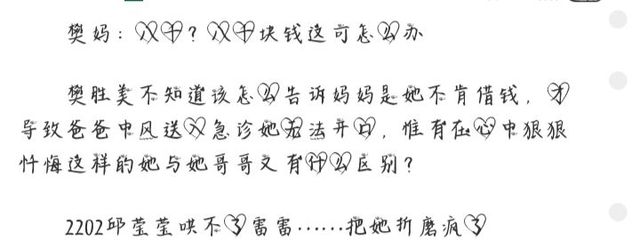 樊妈：八千？八千块钱这可怎么办
樊胜美不知道该怎么告诉妈妈是她不肯借钱，才
导致爸爸中风送入急诊她无法开口，惟有在心中狠狠
忏悔这样的她与她哥哥又有什么区别？
2202邱莹莹哄不了雷雷……把她折磨疯了